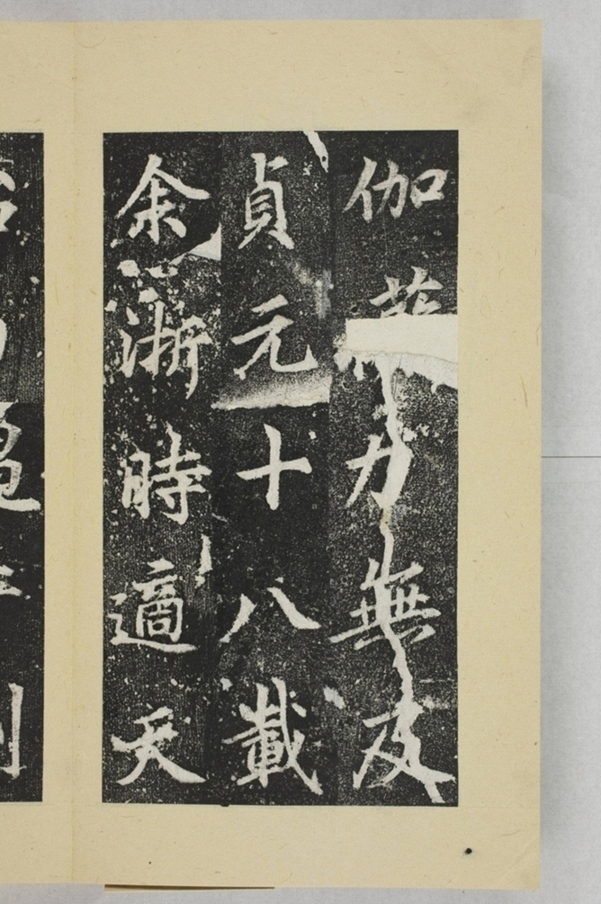 伽 力無及
貞元十八載
余浙時適天